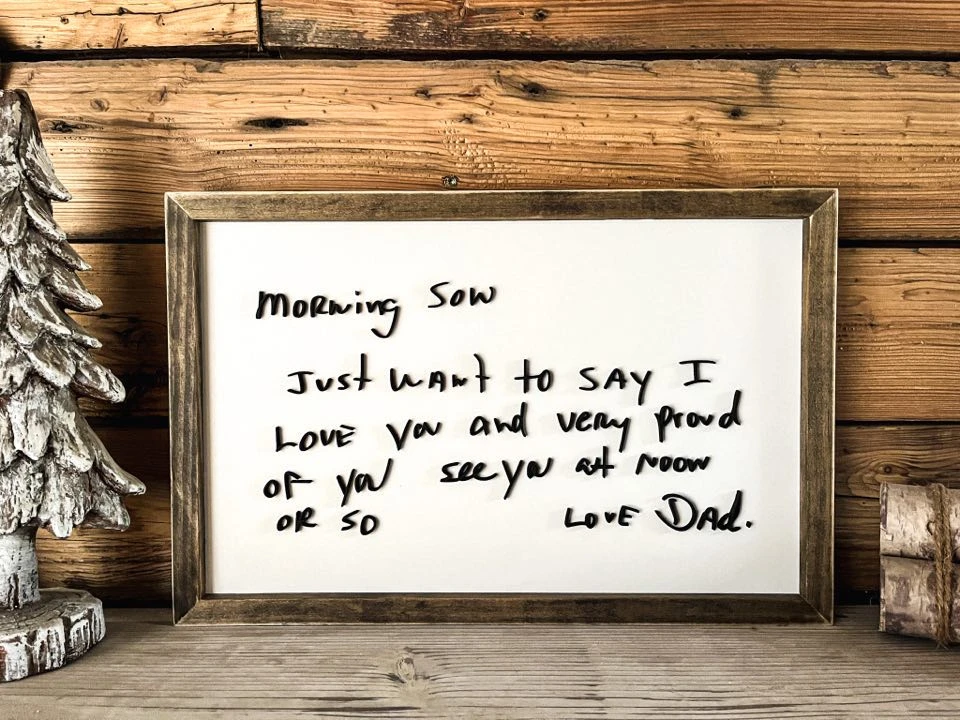 Morning Son
Just want to say I
Love you and very proud
of you see you at noon
or so Love Dad.